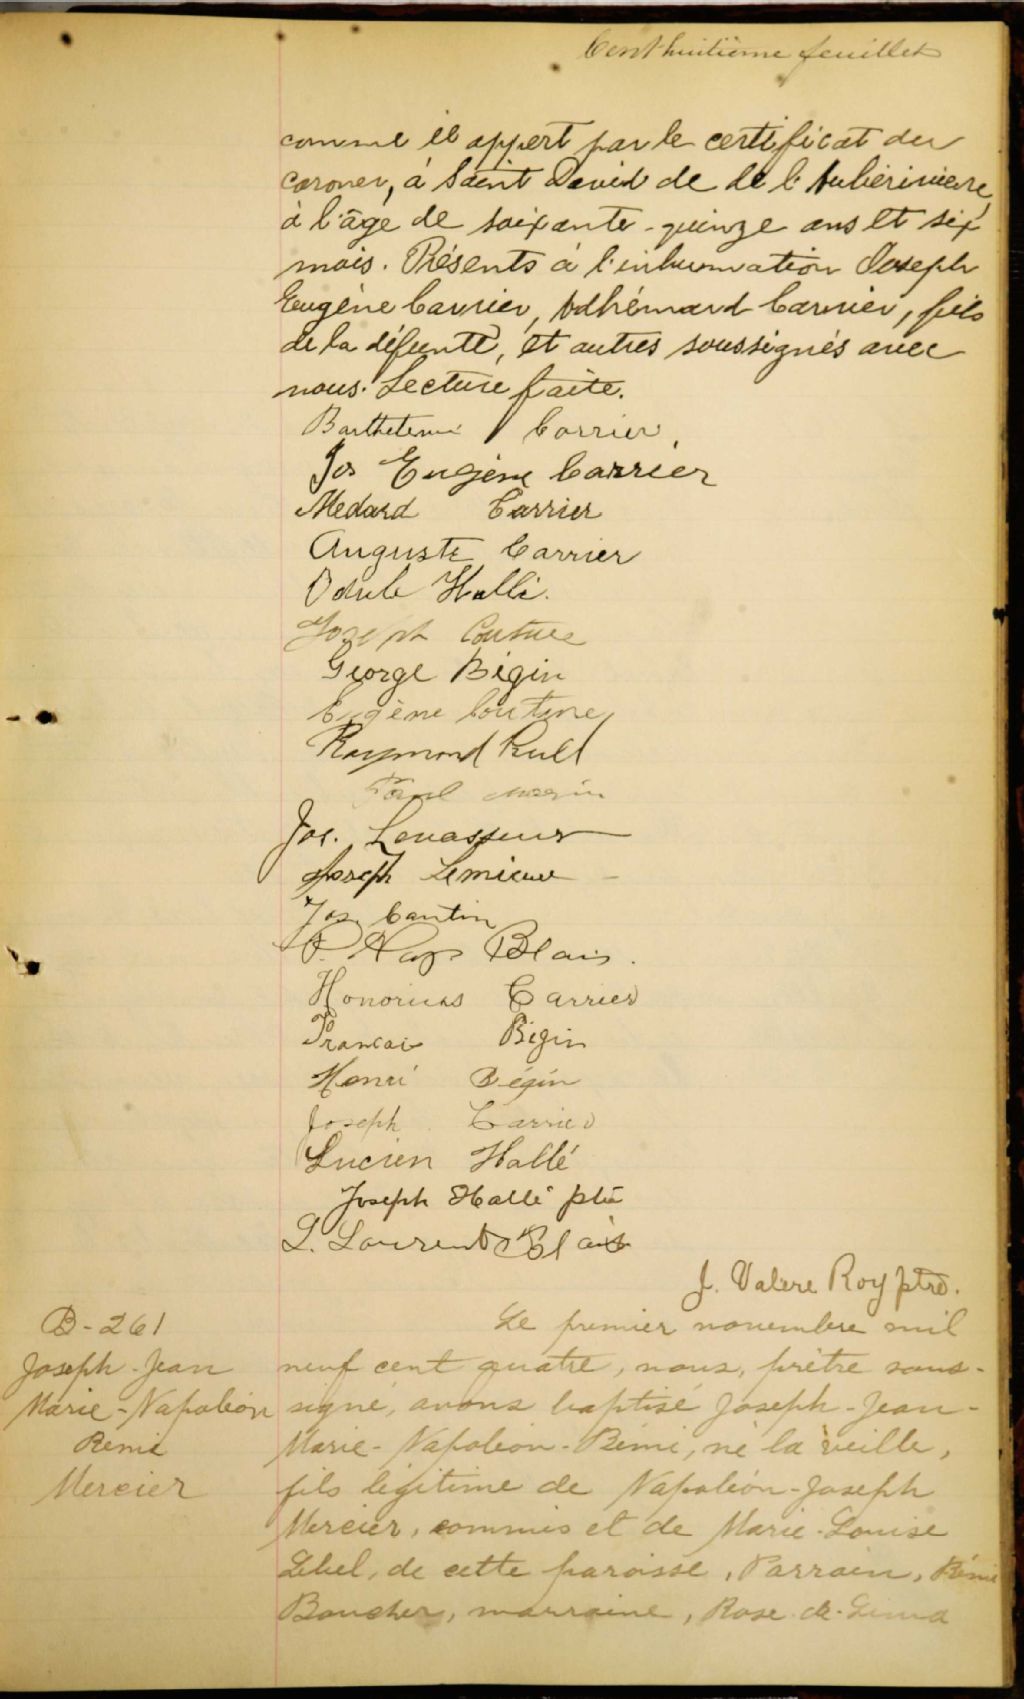 Cent huitième feuillet
comme il appert par le certificat du
coroner, à Saint David de de l'Auberivière,
à l'âge de soixante-quinze ans et six
mois. Présents à l'inhumation Joseph
Eugène Carrier, Adhémard Carrier, fils
de la défunte, et autres soussignés avec
nous. Lecture faite.
Carrier,
Jos Eugène Carrier
Medard Carrier
Auguste Carrier
Odule Halle.
Joseph Couture
George Bégin
Eugène Couture
Raymond
Jos. Levasseur
Joseph Lemieux
Jos. Cantin
P. Nap Blais.
Honorius Carrier
Francois Bégin
Henri Bégin
Joseph Carrier
Lucien Hallé
Joseph Hallé ptre
L. Laurent Blais
J. Valere Roy ptre.
B-261
Joseph-Jean
Marie-Napoléon
Rémi
Mercier
Le premier novembre mil
neuf cent quatre, nous, prêtre sous-
signé, avons baptisé Joseph-Jean-
Marie-Napoléon-Rémi, né la veille,
fils légitime de Napoléon-Joseph
Mercier, commis et de Marie-Louise
Lebel, de cette paroisse, Parrain, Rémi
Boucher, marraine, Rose-de-Lima